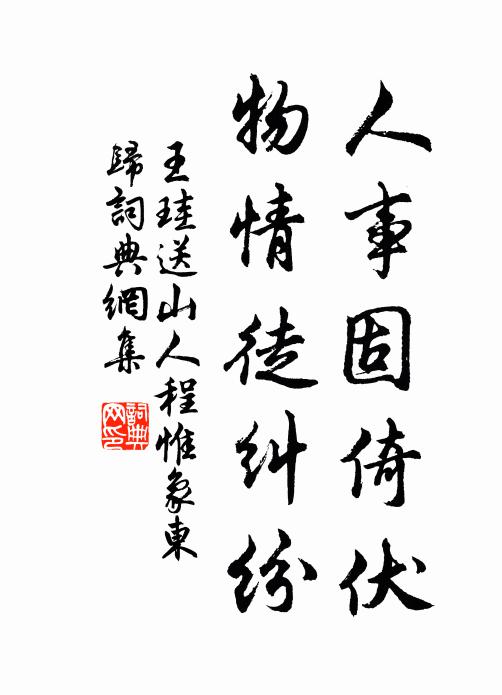 人事固倚伏
物情徒糾紛
王珪送山人程惟象東
歸詞典網集
詞典
网印